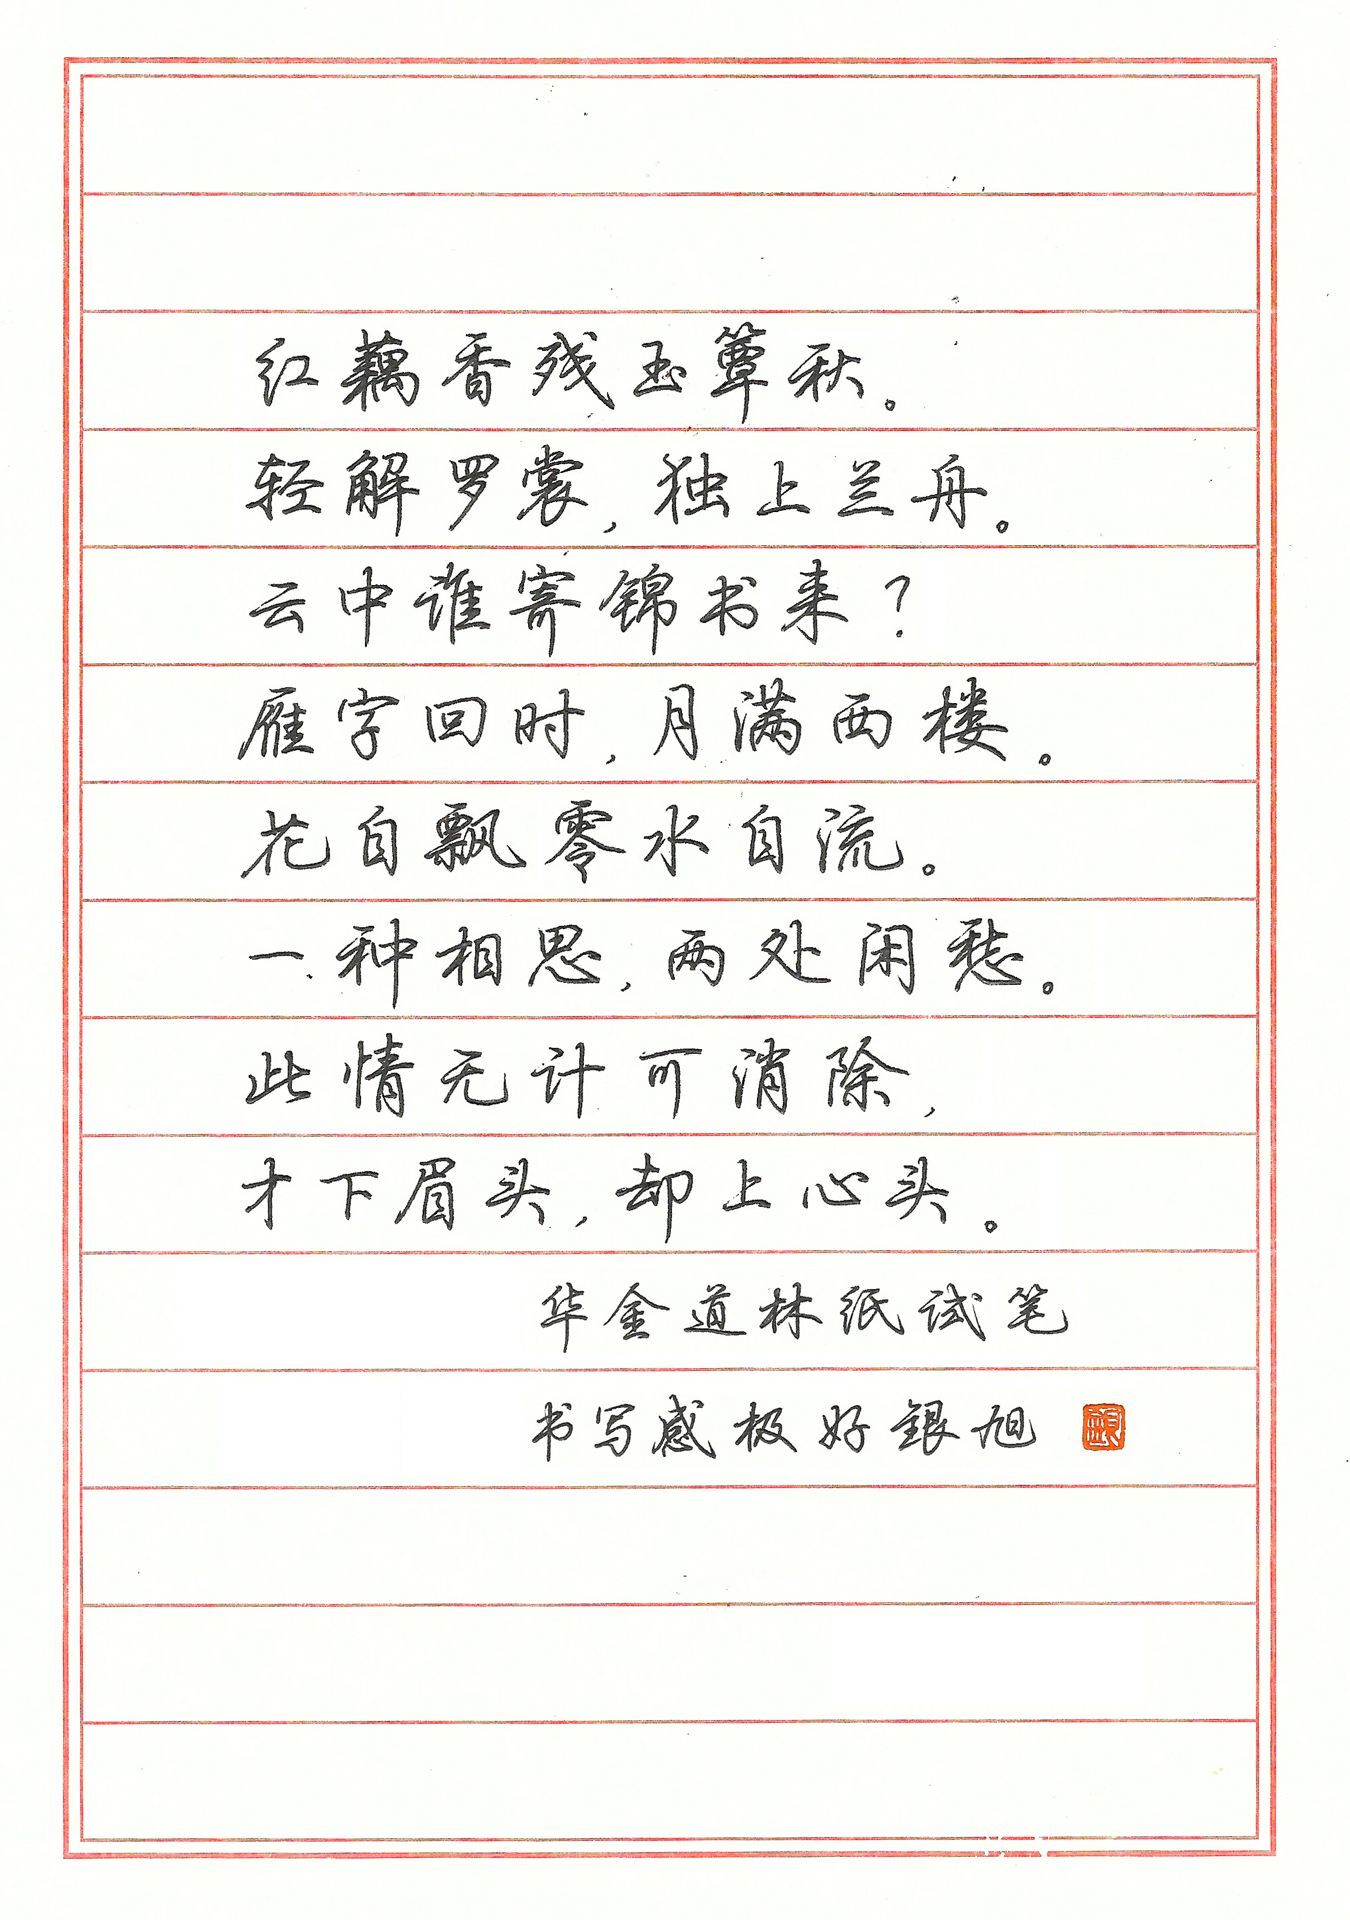 红藕香残玉簟秋。
轻解罗裳,独上兰舟。
云中谁寄锦书来?
雁字回时,月满西楼。
花自飘零水自流。
一种相思,两处闲愁。
此情无计可消除,
才下眉头,却上心头。
华金道林纸试笔
书写感极好銀旭